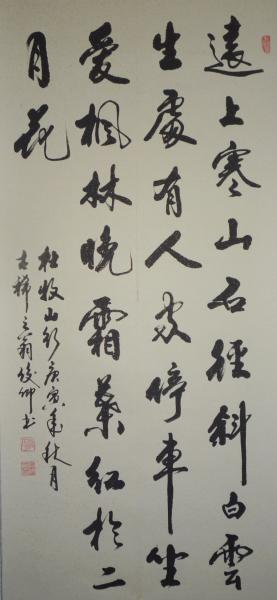 遠上寒山石徑斜白雲
生處有人家停車坐
愛楓林晚霜葉紅於二
月花
杜牧山行庚寅年秋月
古稀之翁卿书